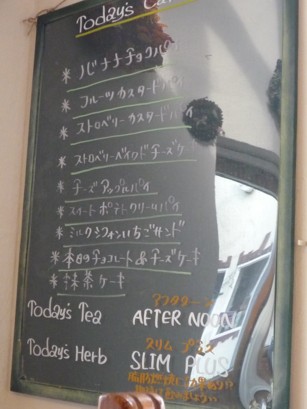 Today's Ca
* バナナチョコパイ
* フルーツカスタードパイ
* ストロベリーカスタードパイ
* ストロベリーベイクドチーズケーキ
* チーズアップルパイ
* スイートポテトクリームパイ
* ミルクシフォンいちごサンド
* 本日のチョコレート&チーズケーキ
* 抹茶ケーキ
アフタヌーン
Today's Tea AFTER NOON
スリム プラス
Today's Herb SLIM PLUS
脂肪燃焼に効果あり!?